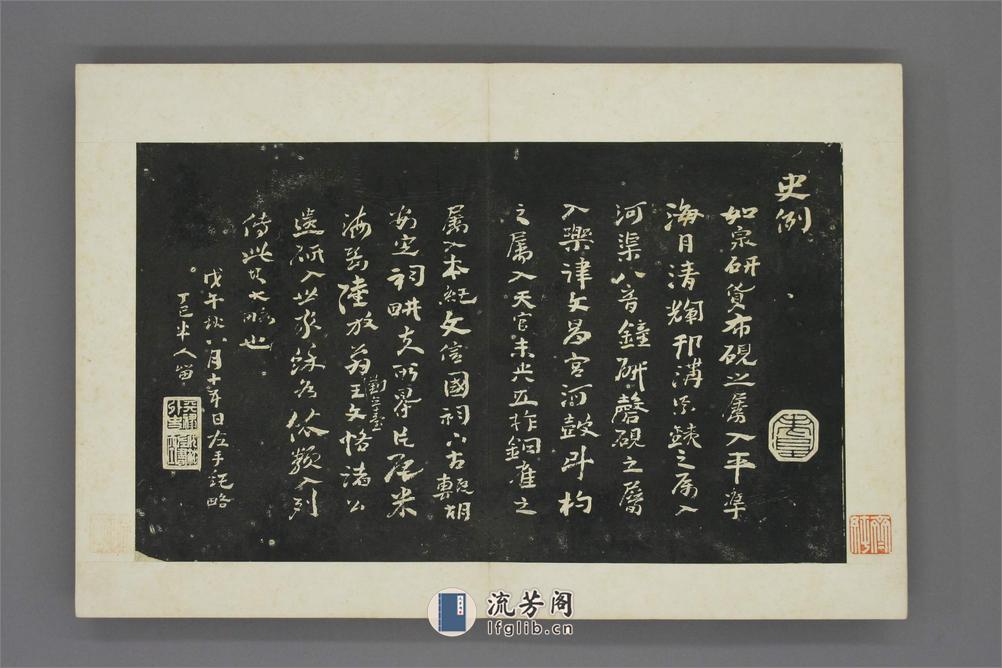 史例
如泉研貨布硯之屬入平準
海月清輝邗溝片鐵之属入
河渠八音鐘研磬硯之屬
入樂律文昌宮河鼓斗杓
之屬入天官未央瓦柞銅雀之
屬入本紀文信國祠下古甎胡
安定祠畊夫所舉片瓦米
海岳陸放翁劉念臺王文恪諸公
遺研入世家餘各依類入列
傳此其大略也
戊午秋八月十有日左手記略
丁巳半人
流芳阁
lfglib.cn